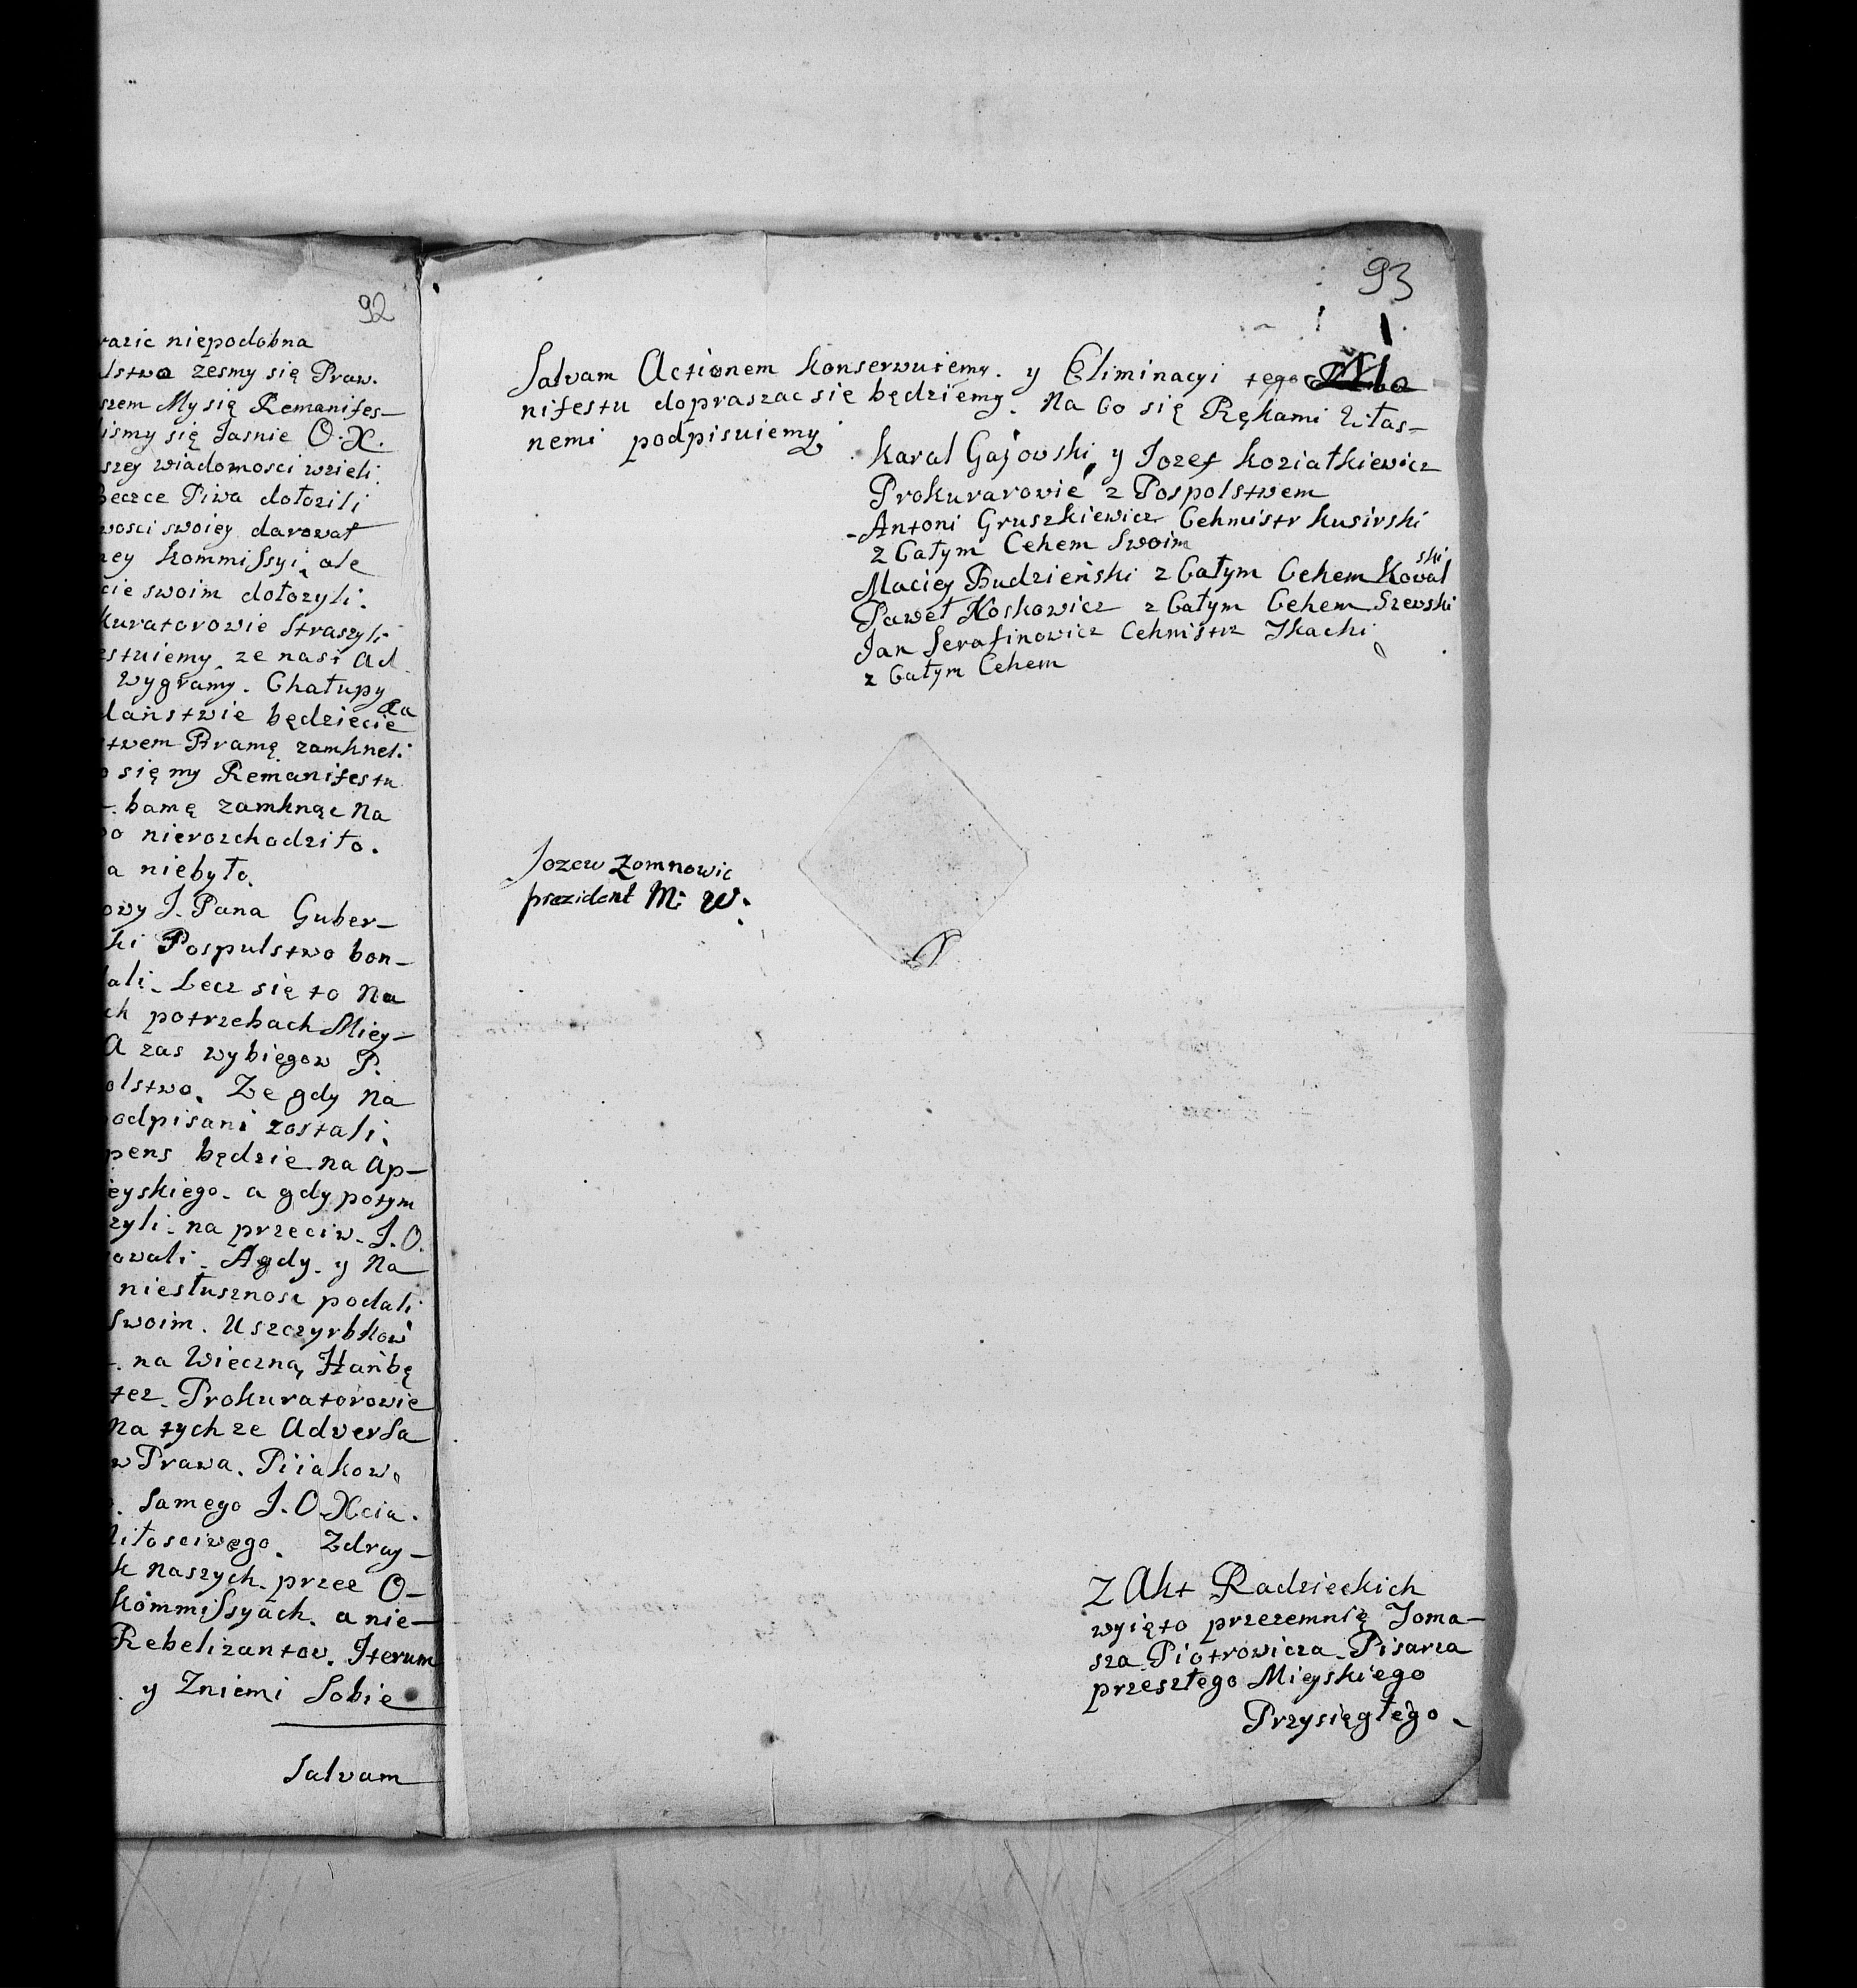 92
razic niepodobna
lstwa zesmy się Praw.
szem My się Remanifes-
lismy się Jasnie O. X.
szey wiadomosci wzieli.
Beczce Piwa dołozili
wosci swoiey darował
ney Kommissyi, ale
cie swoim dołozyli.
kuratorowie Straszyli
estuiemy. ze nasi Ad
wygramy. Chałupy
daństwie będziecie
stwem Bramę zamkneli
o się my Remanifestu
bamę zamknąc Na
po nierozchodziło.
a niebyło.
owy J. Pana Guber-
ki Pospulstwo bon-
ali. Lecz się to Na
ch potrzebach Miey-
A zas wybięgow P.
olstwo. Ze gdy Na
podpisani zostali.
pens będzie na Ap-
eyskiego. a gdy potym
zyli. na przeciw. J. O.
owali. A gdy. y Na
niesłusznosc podali
Swoim. Uszczyrbkow
na Wieczną Hańbę
tez Prokuratorowie
Na tych ze Adversa
w Prawa. Piiakow.
Samego J. O. Xcia.
Miłosciwego. Zdray-
k Naszych. przez O-
Kommissyach. a nie-
Rebelizantow. Iterum
y Zniemi Sobie
Salvam
93
Salvam Actionem konserwuiemy. y Eliminacyi tego Ma
nifestu dopraszac się będziemy. Na Co się Rękami Włas-
nemi podpisuiemy
Karal Gajowski, y Jozef Koziatkiewicz
Prokurarowie z Pospolstwem
Antoni Gruszkiewicz Cehmistr Kusirski
z Całym Cehem Swoim
Maciey Budzieński z Całym Cehem Kowalski
Paweł Koskowicz z Całym Cehem Szewski
Jan Serafinowicz Cehmistrz Tkacki
z Całym Cehem
Jozew Zomnowic
prezident M: W:
Z Akt Radzieckich
wyięto przezemnię Toma-
sza Piotrowicza Pisarza
przeszłego Mieyskiego
Przysięgłego